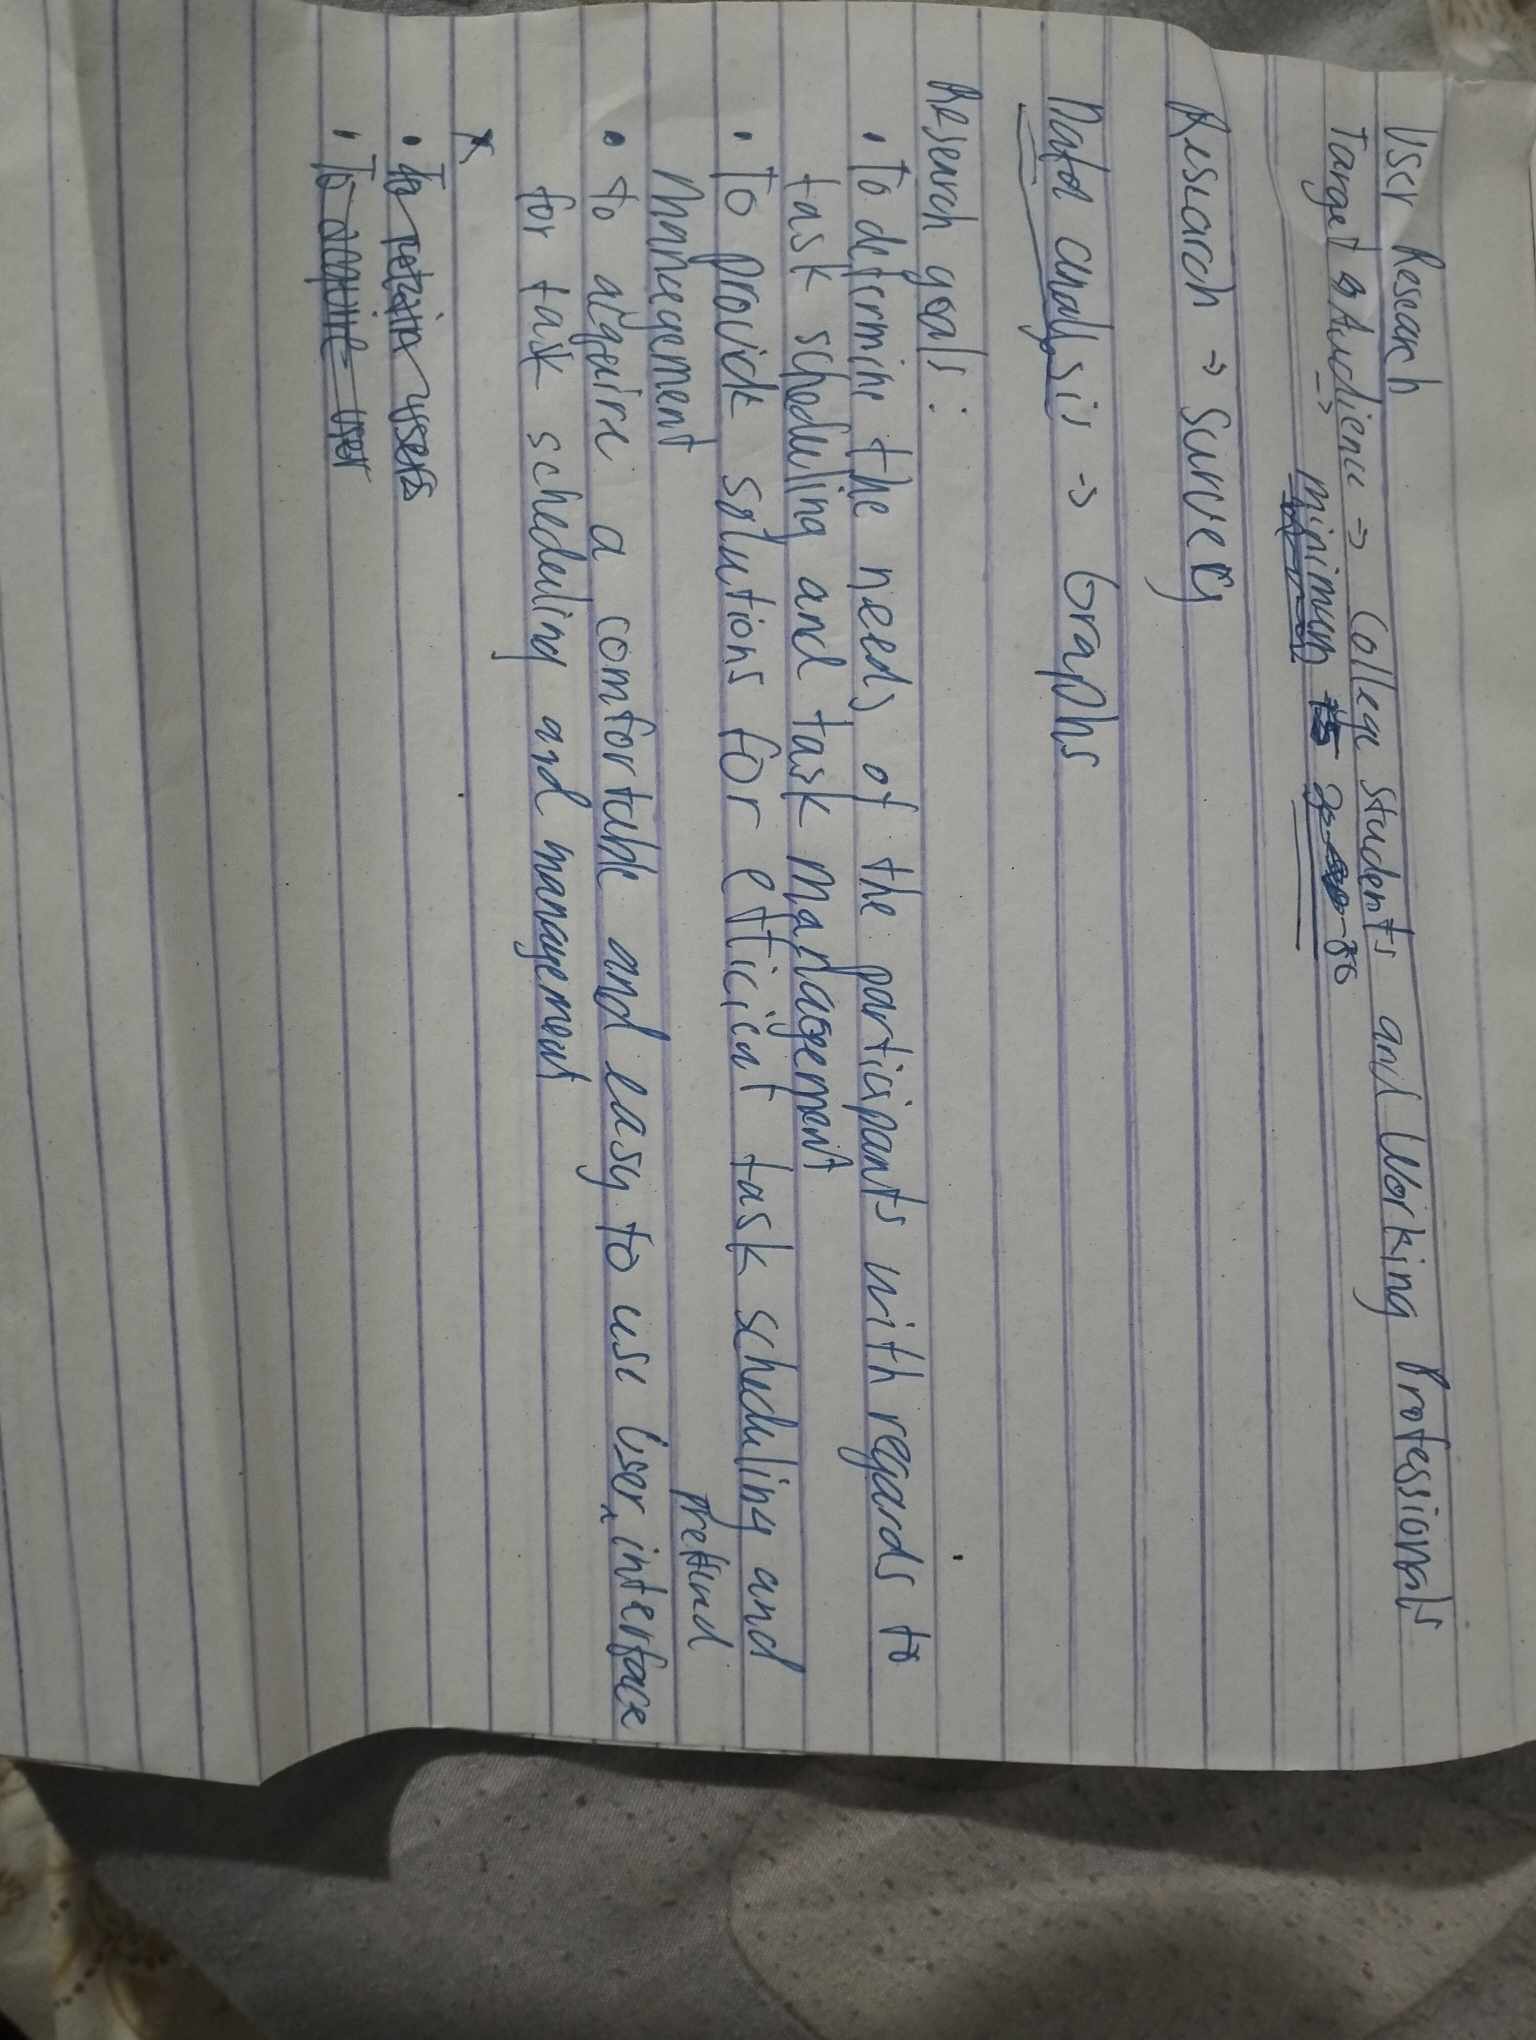 User Research
Target Audience → College Students and Working Professionals
→ minimum
Research → survey
Data analysis → Graphs
Research goals:
• To determine the needs of the participants with regards to
task scheduling and task management
• To provide solutions for efficient task scheduling and
management
preffered
• to acquire a comfortable and easy to use User interface
for task scheduling and management
x
• To retain users
• To acquire user